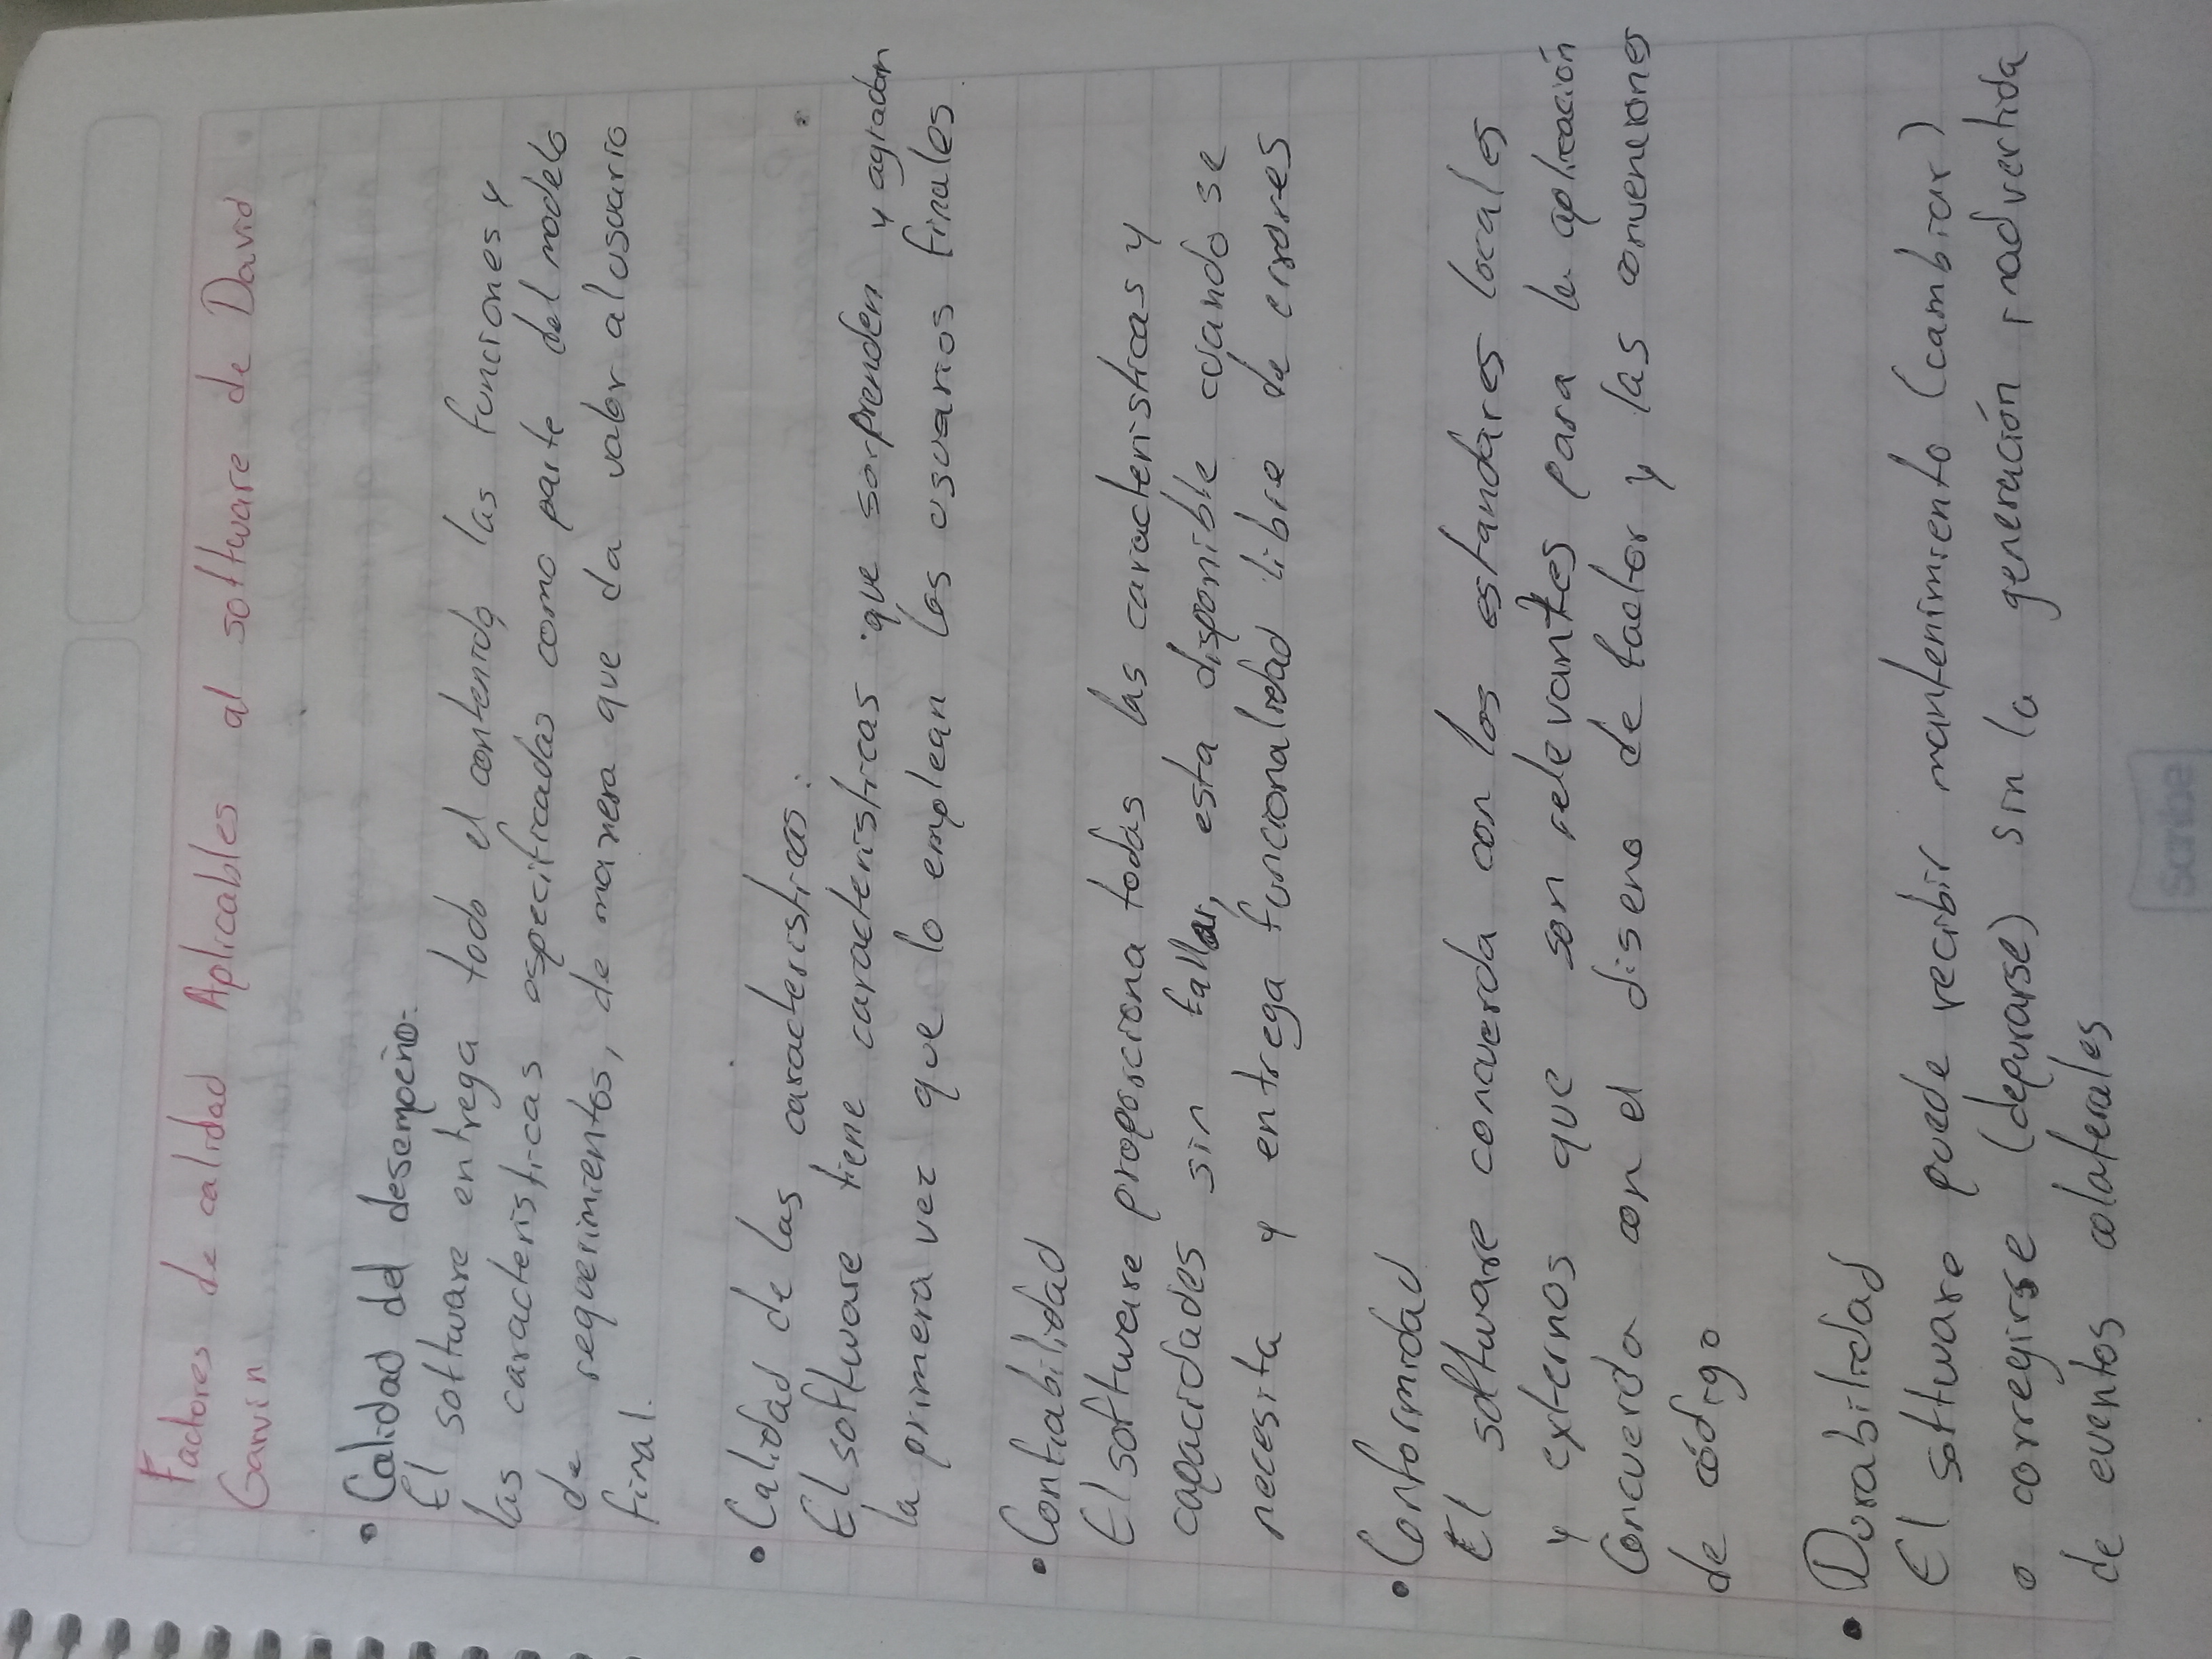 Factores de calidad Aplicables al software de David
Garvin
• Calidad del desempeño:
El software entrega todo el contenido, las funciones y
las caracteristicas especificadas como parte del modelo
de requerimientos, de manera que da valor al usuario
final.
• Calidad de las caracteristicas:
El software tiene caracteristicas que sorprenden y agradan
la primera vez que lo emplean los usuarios finales
• Confiabilidad
El software proporciona todas las caracteristicas y
capacidades sin fallar, esta disponible cuando se
necesita y entrega funcionalidad libre de errores
• Conformidad
El software concuerda con los estandares locales
y externos que son relevantes para la aplicación
Concuerda con el diseno de factor y las convenciones
de código
• Durabilidad
El software puede recibir mantenimiento (cambiar)
o corregirse (depurarse) sin la generación inadvertida
de eventos colaterales
Scribe